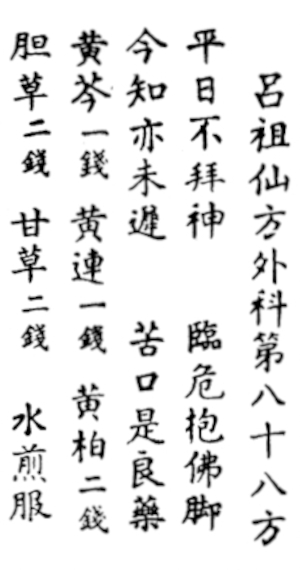 呂祖仙方外科第八十八方
平日不拜神　臨危抱佛脚
今知亦未遲　苦口是良藥
黄芩一錢　黄連一錢　黄柏二錢
胆草二錢　甘草二錢　水煎服